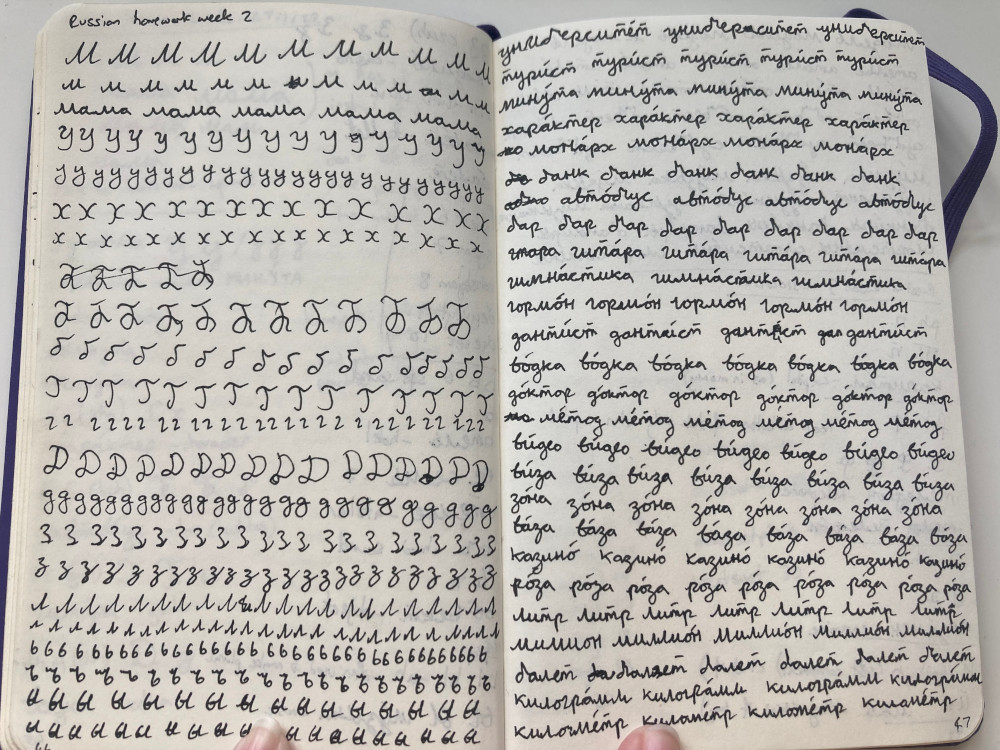 Russian homework week 2
М М М М М М М М М М М
м м м м м м м м м м м м м
мама мама мама мама мама
У У У У У У У У У У У У У У У У
у у у у у у у у у у у у у у у у у у у у у у
Х Х Х Х Х Х Х Х Х Х Х Х Х Х
х х х х х х х х х х х х х х х х
Б Б Б Б Б
Б Б Б Б Б Б Б Б Б Б Б Б
б б б б б б б б б б б б б б б б
Г Г Г Г Г Г Г Г Г Г Г Г Г Г
г г г г г г г г г г г г г г г г г г г г
Д Д Д Д Д Д Д Д Д Д Д Д Д Д Д Д
д д д д д д д д д д д д д д д д д д д д д д д д
З З З З З З З З З З З З З З З З З З
з з з з з з з з з з з з з з з з з з з з з з
Л Л Л Л Л Л Л Л Л Л Л Л Л Л Л Л Л Л
л л л л л л л л л л л л л л л л л л л л
ь ь ь ь ь ь ь ь ь ь ь ь ь ь ь ь ь ь ь ь ь ь ь ь
ъ ъ ъ ъ ъ ъ ъ ъ ъ ъ ъ ъ ъ ъ ъ ъ ъ ъ ъ ъ
ы ы ы ы ы ы ы ы ы ы ы ы ы ы ы ы
ы ы ы ы ы ы ы ы ы ы ы ы ы ы ы ы ы
университе́т университе́т университе́т
тури́ст тури́ст тури́ст тури́ст тури́ст
мину́та мину́та мину́та мину́та мину́та
хара́ктер хара́ктер хара́ктер хара́ктер
мона́рх мона́рх мона́рх мона́рх
банк банк банк банк банк
авто́бус авто́бус авто́бус авто́бус
бар бар бар бар бар бар бар бар бар
гита́ра гита́ра гита́ра гита́ра гита́ра
гимна́стика гимна́стика гимна́стика
гормо́н гормо́н гормо́н гормо́н гормо́н
данти́ст данти́ст данти́ст данти́ст
во́дка во́дка во́дка во́дка во́дка во́дка во́дка
до́ктор до́ктор до́ктор до́ктор до́ктор до́ктор
ме́тод ме́тод ме́тод ме́тод ме́тод ме́тод
ви́део ви́део ви́део ви́део ви́део ви́део
ви́за ви́за ви́за ви́за ви́за ви́за ви́за ви́за
зо́на зо́на зо́на зо́на зо́на зо́на зо́на
ва́за ва́за ва́за ва́за ва́за ва́за ва́за
казино́ казино́ казино́ казино́ казино́ казино́
ро́за ро́за ро́за ро́за ро́за ро́за ро́за ро́за
литр литр литр литр литр литр литр
миллио́н миллио́н миллио́н миллио́н миллио́н
балет балет балет балет балет балет
килогра́мм килогра́мм килогра́мм килогра́мм
киломе́тр киломе́тр киломе́тр киломе́тр
47